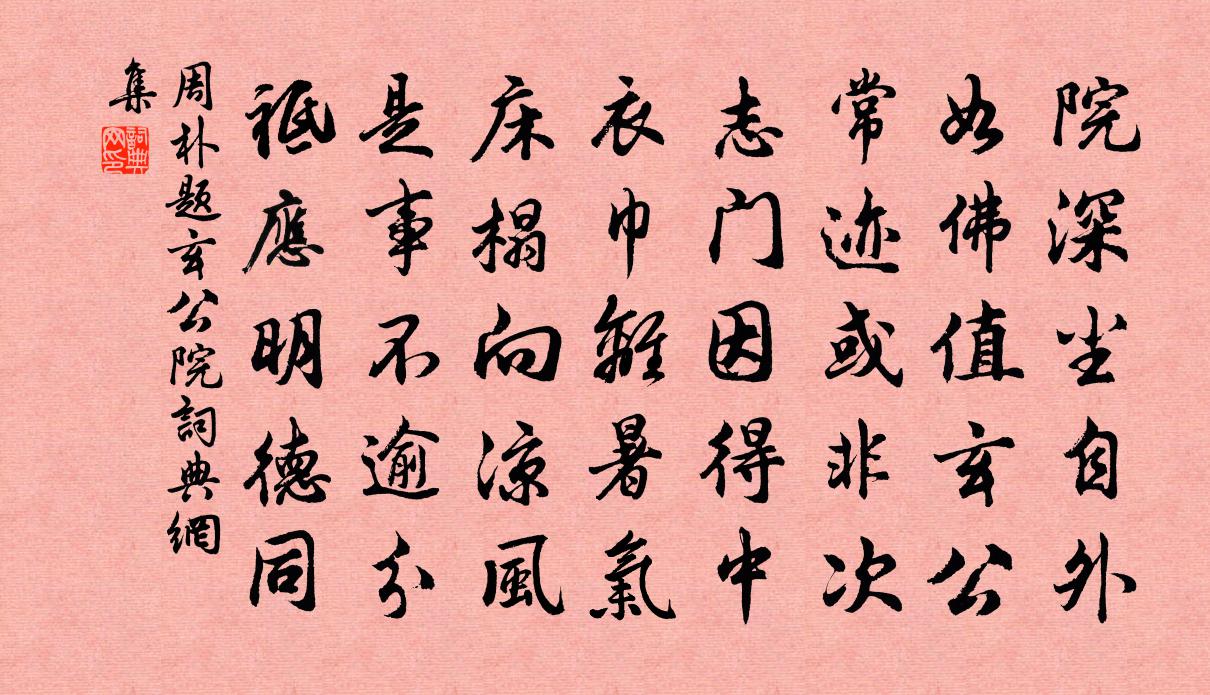 院深尘自外
如佛值玄公
常迹或非次
志门因得中
衣巾離暑氣
床榻向涼風
是事不逾分
祗應明德同
周朴题玄公院詞典網
集
詞典网印